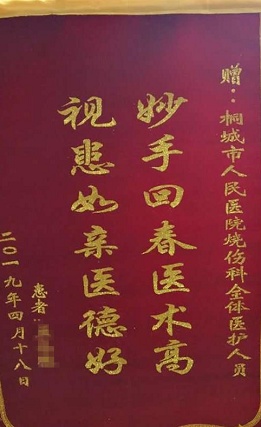 赠：桐城市人民医院烧伤科全体医护人员
妙手回春医术高
视患如亲医德好
患者：
二〇一九年四月十八日